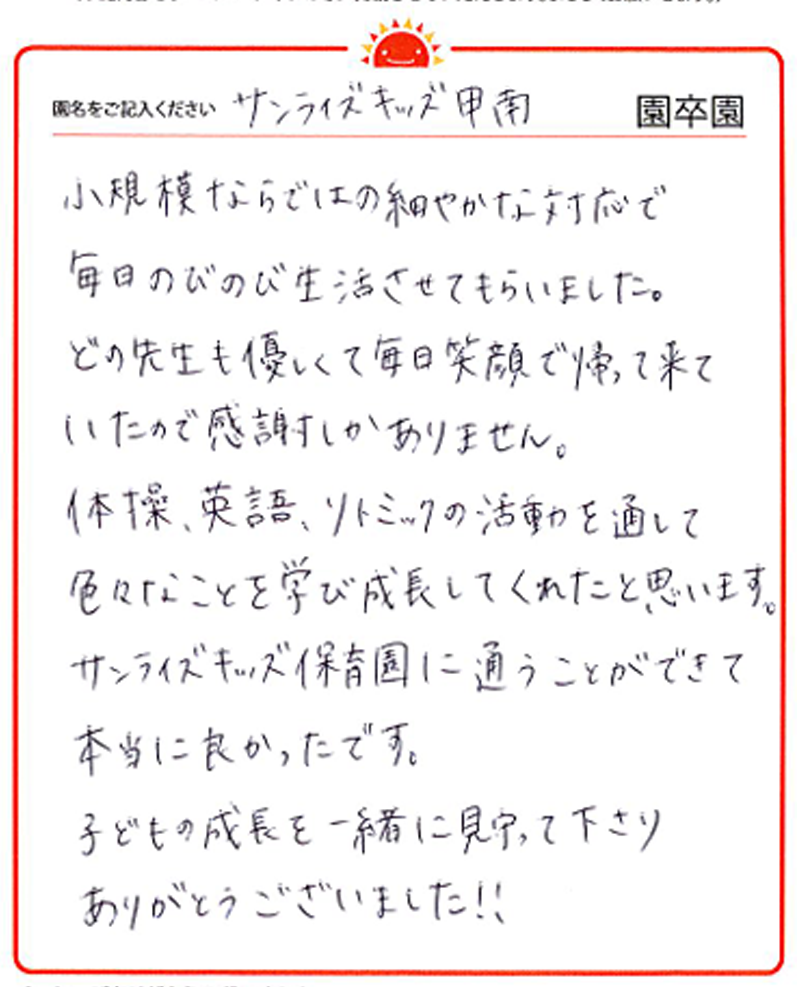 園名をご記入ください サンライズキッズ甲南 園卒園
小規模ならではの細やかな対応で
毎日のびのび生活させてもらいました。
どの先生も優しくて毎日笑顔で帰って来て
いたので感謝しかありません。
体操、英語、リトミックの活動を通して
色々なことを学び成長してくれたと思います。
サンライズキッズ保育園に通うことができて
本当に良かったです。
子どもの成長を一緒に見守って下さり
ありがとうございました!!